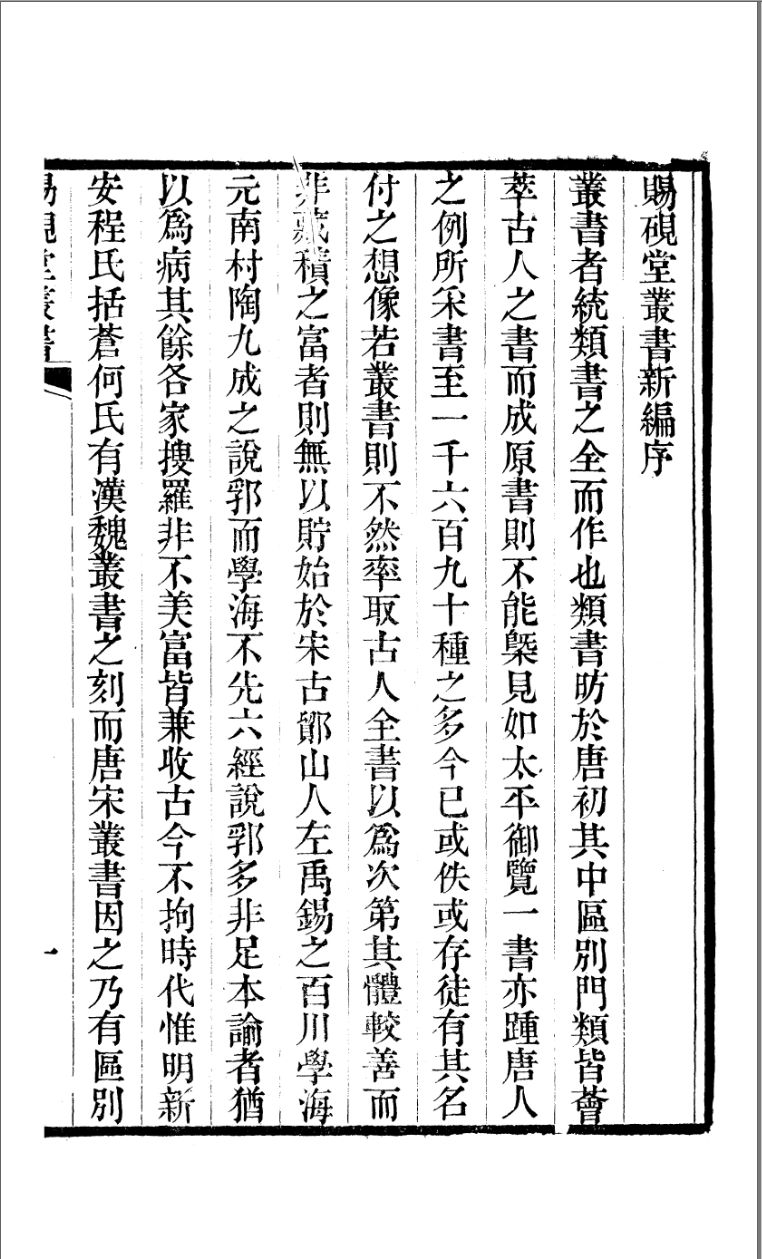 賜硯堂叢書新編序
叢書者統類書之全而作也類書昉於唐初其中區別門類皆薈
萃古人之書而成原書則不能槩見如太平御覽一書亦踵唐人
之例所采書至一千六百九十種之多今已或佚或存徒有其名
付之想像若叢書則不然率取古人全書以爲次第其體較善而
非藏積之富者則無以貯始於宋古鄮山人左禹錫之百川學海
元南村陶九成之說郛而學海不先六經說郛多非足本論者猶
以爲病其餘各家搜羅非不美富皆兼收古今不拘時代惟明新
安程氏括蒼何氏有漢魏叢書之刻而唐宋叢書因之乃有區別
賜硯堂叢書
一